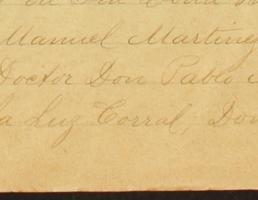 Manuel Martinez
Doctor Don Pablo
la Luz Corral, Don